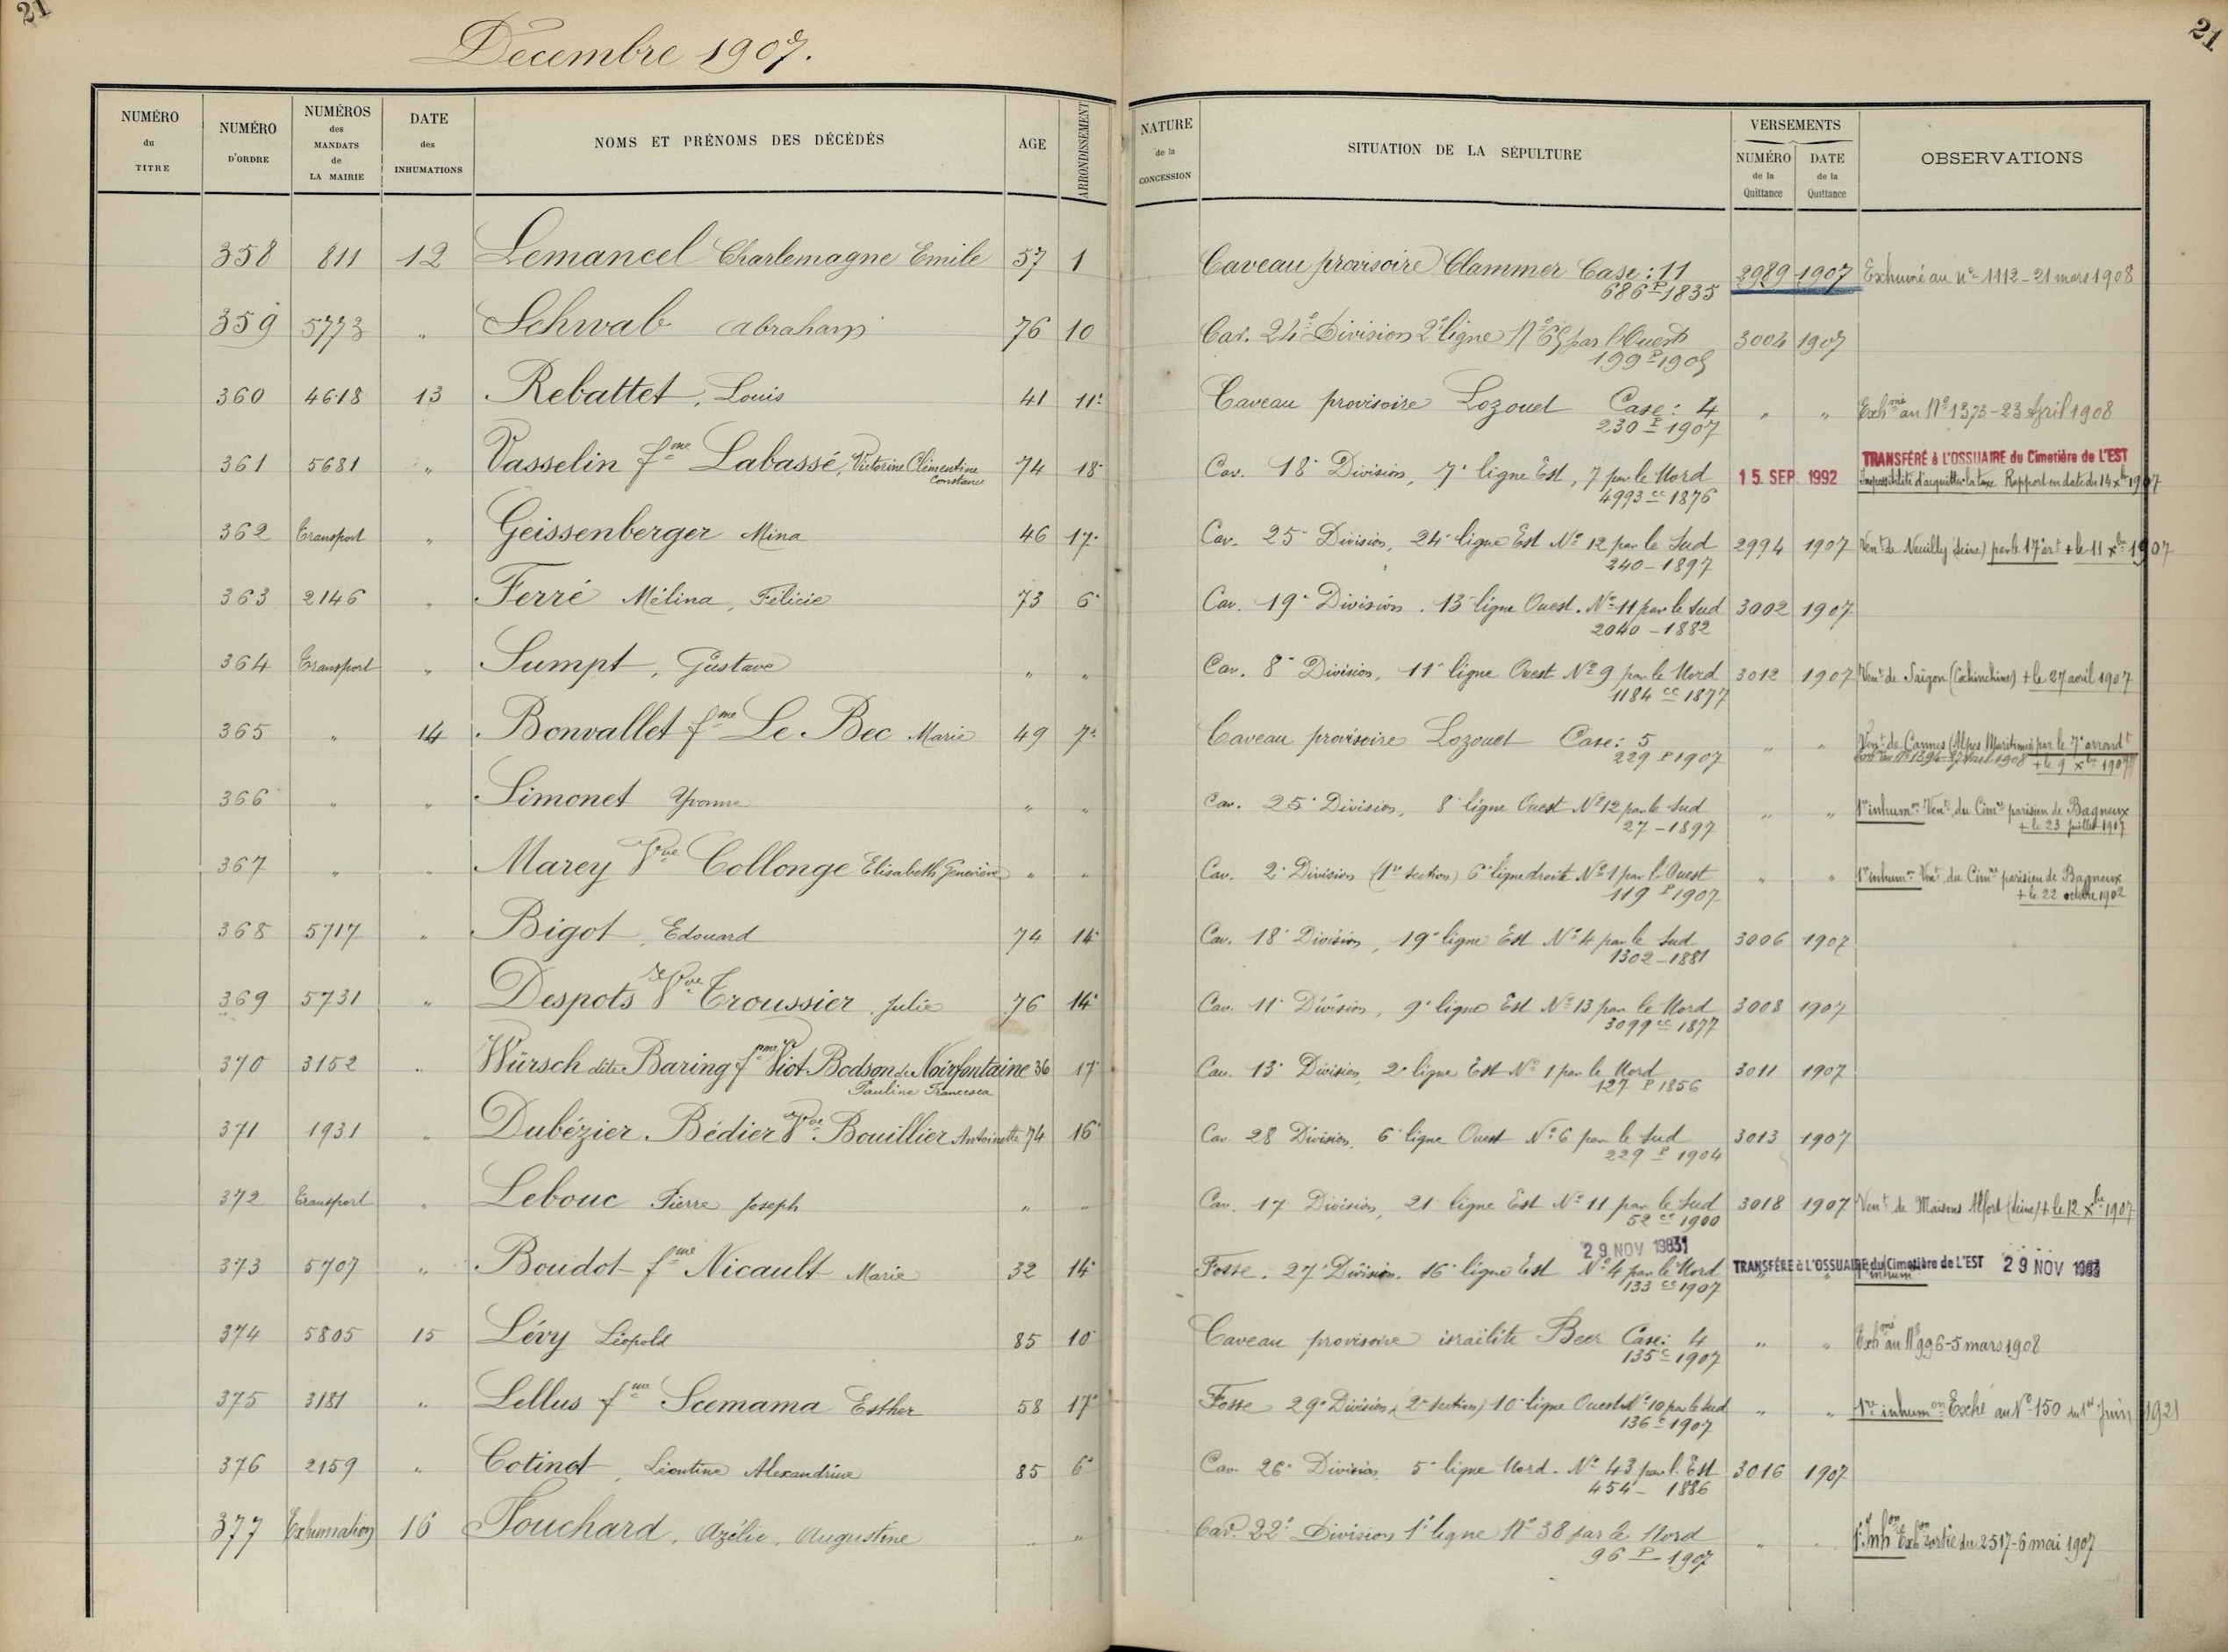 21
21
Decembre 1907.
NUMÉRO du TITRE
NUMÉRO D'ORDRE
NUMÉROS des MANDATS de LA MAIRIE
DATE des INHUMATIONS
NOMS ET PRÉNOMS DES DÉCÉDÉS
AGE
ARRONDISSEMENT
NATURE de la CONCESSION
SITUATION DE LA SÉPULTURE
VERSEMENTS
NUMÉRO de la Quittance
DATE de la Quittance
OBSERVATIONS
358 811 12 Lemancel Charlemagne Emile 57 1 Caveau provisoire Clammer Case : 11 2989 1907 Exhumé au n° 1112 - 21 mars 1908
686 P 1835
359 5773 " Schwab Abraham 76 10 Cav. 24e Division 2e ligne N° 65 par l'Ouest 3004 1907
199 P 1905
360 4618 13 Rebattet, Louis 41 11e Caveau provisoire Lozouet Case : 4 " " Exhmé au N° 1373 - 23 April 1908
230 P 1907
361 5681 " Vasselin fme Labassé, Victorine Clémentine 74 18 Cav. 18e Division, 7e ligne Est, 7 par le Nord 15 SEP. 1992 TRANSFÉRÉ à L'OSSUAIRE du Cimetière de L'EST
Constance 4993 cc 1876 Impossibilité d'acquitter la taxe. Rapport en date du 14 xbre 1907
362 Transport " Geissenberger Mina 46 17e Cav. 25e Division, 24e ligne Est N° 12 par le Sud 2994 1907 Vent de Neuilly (Seine) par le 17e art + le 11 xbre 1907
240 - 1897
363 2146 " Ferré Mélina, Félicie 73 6e Cav. 19e Division. 13e ligne Ouest. N° 11 par le Sud 3002 1907
2040 - 1882
364 Transport " Sumpt, Gustave " " Cav. 8e Division, 11e ligne Ouest N° 9 par le Nord 3012 1907 Vent de Saïgon (Cochinchine) + le 27 avril 1907
1184 cc 1877
365 " 14 Bonvallet fme Le Bec Marie 49 7e Caveau provisoire Lozouet Case : 5 " " Vent de Cannes (Alpes Maritimes) par le 7e arrondt
229 P 1907 + le 9 xbre 1907
366 " " Simonet Yvonne " " Cav. 25e Division, 8e ligne Ouest N° 12 par le Sud " " 1re inhumon Vent du Cimre parisien de Bagneux
27 - 1897 + le 23 juillet 1907
367 " " Marey Vve Collonge Elisabeth Geneviève " " Cav. 2e Division (1re section) 6e ligne droite N° 1 par l'Ouest " " 1re inhumon Vent du Cimre parisien de Bagneux
119 P 1907 + le 22 octobre 1902
368 5717 " Bigot, Edouard 74 14e Cav. 18e Division, 19e ligne Est N° 4 par le Sud 3006 1907
1302 - 1881
369 5731 " Despots Vve Troussier, Julie 76 14e Cav. 11e Division, 9e ligne Est N° 13 par le Nord 3008 1907
3099 cc 1877
370 3152 " Würsch dite Baring fme Viot Bodson de Noirfontaine 36 17e Cav. 13e Division, 2e ligne Est N° 1 par le Nord 3011 1907
Pauline Francesca 127 P 1856
371 1931 " Dubézier Bédier Vve Bouillier Antoinette 74 16e Cav. 28 Division, 6e ligne Ouest N° 6 par le Sud 3013 1907
229 P 1904
372 Transport " Lebouc Pierre Joseph " " Cav. 17e Division, 21e ligne Est N° 11 par le Sud 3018 1907 Vent de Maisons Alfort (Seine) + le 12 xbre 1907
52 cc 1900
29 NOV 1983
373 5707 " Boudot fme Nicault Marie 32 14e Fosse. 27e Division. 16e ligne Est N° 4 par le Nord TRANSFÉRÉ à L'OSSUAIRE du Cimetière de L'EST 29 NOV 1983
133 cc 1907
374 5805 15 Lévy Léopold 85 10e Caveau provisoire israélite Beer Case : 4 " " Exhmé au N° 996 - 5 mars 1908
135 c 1907
375 3181 " Lellus fme Scemama Esther 58 17e Fosse 29e Division (2e section) 10e ligne Ouest N° 10 par le Sud " " 1re inhumon Exhé au N° 150 du 1er Juin 1921
136 c 1907
376 2159 " Cotinet, Léontine Alexandrine 85 6e Cav. 26e Division, 5e ligne Nord. N° 43 par l'Est 3016 1907
454 - 1886
377 Exhumation 16 Fouchard, Azélie, Augustine " " Cav. 22e Division 1e ligne N° 38 par le Nord " " 1e Inhon Exhon sortie du 2517 - 6 mai 1907
96 P 1907